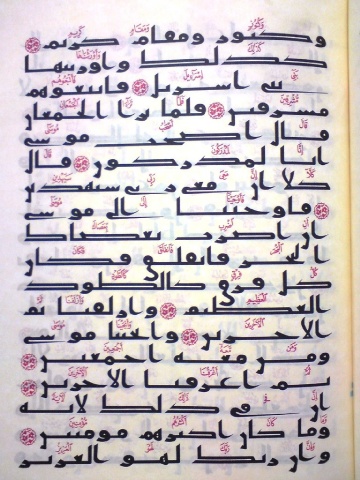 وكنوز ومقام كريم
كذلك واورثنها
بني اسريل فاتبعوهم
مشرقين فلما ترا الجمعن
قال اصحب موسى
انا لمدركون قال
كلا ان معي ربي سيهدين
فاوحينا الى موسى
ان اضرب بعصاك
البحر فانفلق فكان
كل فرق كالطود
العظيم وازلفنا ثم
الاخرين وانجينا موسى
ومن معه اجمعين
ثم اغرقنا الاخرين
ان في ذلك لاية
وما كان اكثرهم مومنين
وان ربك لهو العزيز